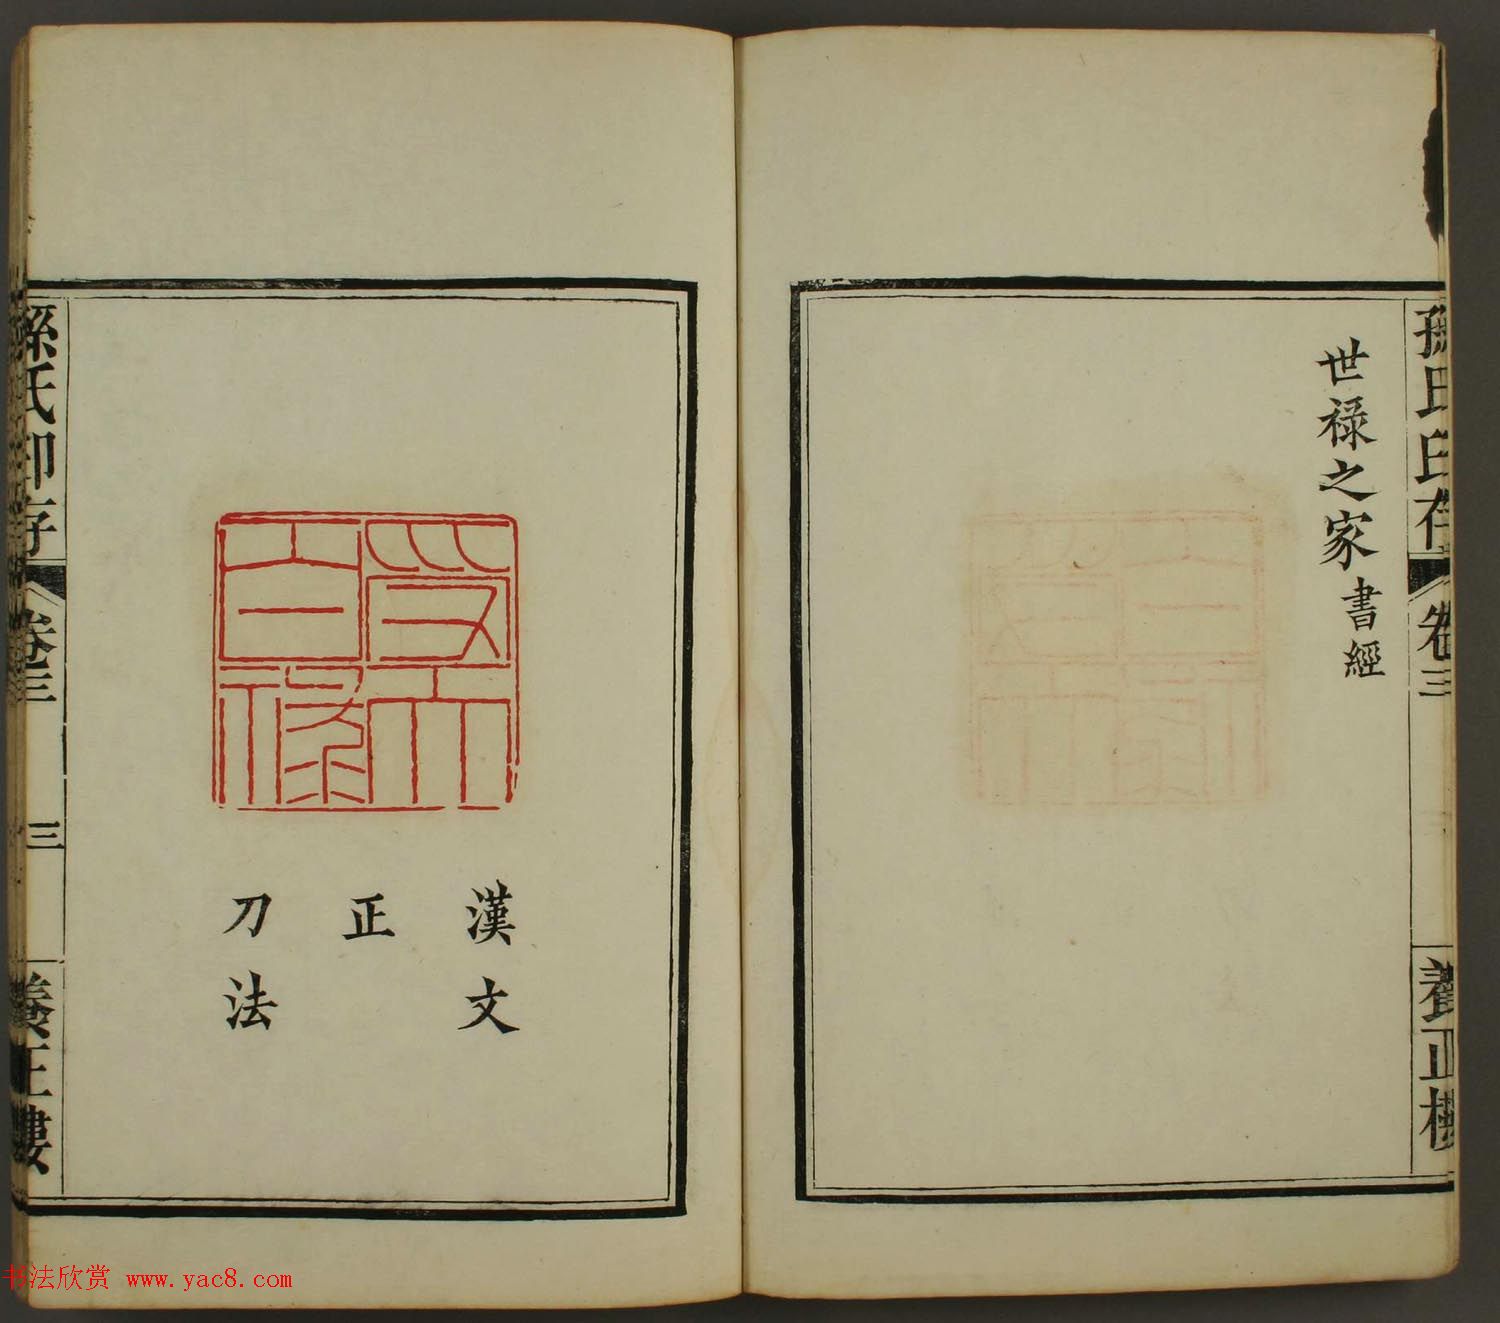 孫氏印存
卷三
養正樓
世禄之家 書經
受天
百祿
漢文
正
刀法
孫氏印存
卷三
三
養正樓
书法欣赏 www.yac8.com